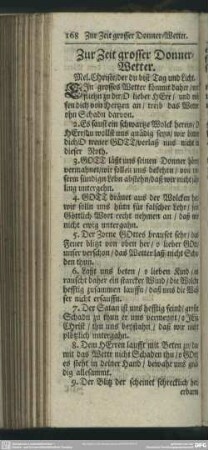 168 Zur Zeit grosser Donner-Wetter.
Zur Zeit grosser Donner-
Wetter.
Mel. Christe, der du bist Tag und Licht.
EIn grosses Wetter kommt daher / wir
fliehen zu dir O lieber HErr /
sen dich von Hertzen an / treib das Wet-
ohn Schadn darvon.
2. Es saust ein schwartze Wolck herein /
HErr du wollst uns gnädig seyn /
dich O treuer GOTT / verlaß uns nicht
dieser Noth.
3. GOTT läßt uns seinen Donner hörn
vermahnet / wir sollen uns bekehrn / von
serm sündign Lebn abstehn / daß wir nicht
lung untergehn.
4. GOTT dräuet aus der Wolcken
wir solln uns hütn für falscher Lehr /
Göttlich Wort recht nehmen an / daß wir
nicht ewig untergahn.
5. Der Zorne GOttes brauset sehr /
Feuer blitzt von oben her / o lieber GOtt
unser verschon / das Wetter laß nicht Scha-
den thun.
6. Laßt uns beten / o lieben Kind /
rauscht daher ein starcker Wind /
hefftig zusammen laufft / daß uns die Wäs-
ser nicht ersaufft.
7. Der Satan ist uns hefftig feind /
Schadn zu thun er uns vermeynt / o JEsu
Christ / thu uns beystahn / daß wir nicht
plötzlich untergahn.
8. Dem HErren laufft mit Beten zu /
mit das Wettr nicht Schaden thu / o GOtt
es steht in deiner Hand / bewahr uns gnä-
dig allesammt.
9. Der Blitz der scheinet schrecklich